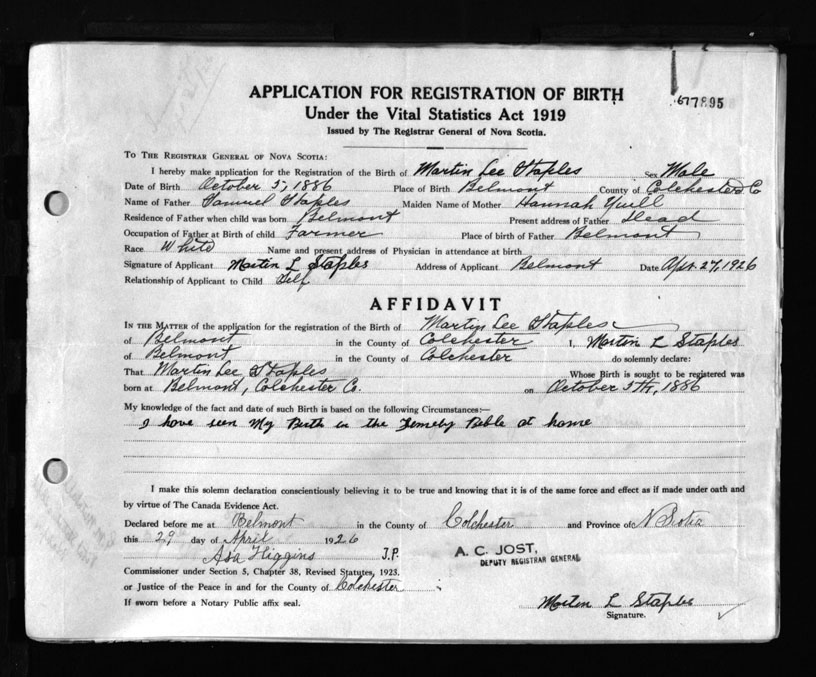 677895
APPLICATION FOR REGISTRATION OF BIRTH
Under the Vital Statistics Act 1919
Issued by The Registrar General of Nova Scotia.
TO THE REGISTRAR GENERAL OF NOVA SCOTIA:
I hereby make application for the Registration of the Birth of Martin Lee Staples Sex Male
Date of Birth October 5, 1886 Place of Birth Belmont County of Colchester Co
Name of Father Samuel Staples Maiden Name of Mother Hannah Yuill
Residence of Father when child was born Belmont Present address of Father Dead
Occupation of Father at Birth of child Farmer Place of birth of Father Belmont
Race White Name and present address of Physician in attendance at birth
Signature of Applicant Martin L Staples Address of Applicant Belmont Date Apr. 27, 1926
Relationship of Applicant to Child Self
AFFIDAVIT
IN THE MATTER of the application for the registration of the Birth of Martin Lee Staples
of Belmont in the County of Colchester I, Martin L Staples
of Belmont in the County of Colchester do solemnly declare:
That Martin Lee Staples Whose Birth is sought to be registered was
born at Belmont, Colchester Co. on October 5th, 1886
My knowledge of the fact and date of such Birth is based on the following Circumstances:—
I have seen My Birth in the Bible at home
I make this solemn declaration conscientiously believing it to be true and knowing that it is of the same force and effect as if made under oath and
by virtue of The Canada Evidence Act.
Declared before me at Belmont in the County of Colchester and Province of N Scotia
this 29 day of April 1926
Asa Higgins J.P.
A. C. JOST,
DEPUTY REGISTRAR GENERAL
Commissioner under Section 5, Chapter 38, Revised Statutes, 1923,
or Justice of the Peace in and for the County of Colchester ;
If sworn before a Notary Public affix seal.
Martin L Staples
Signature.